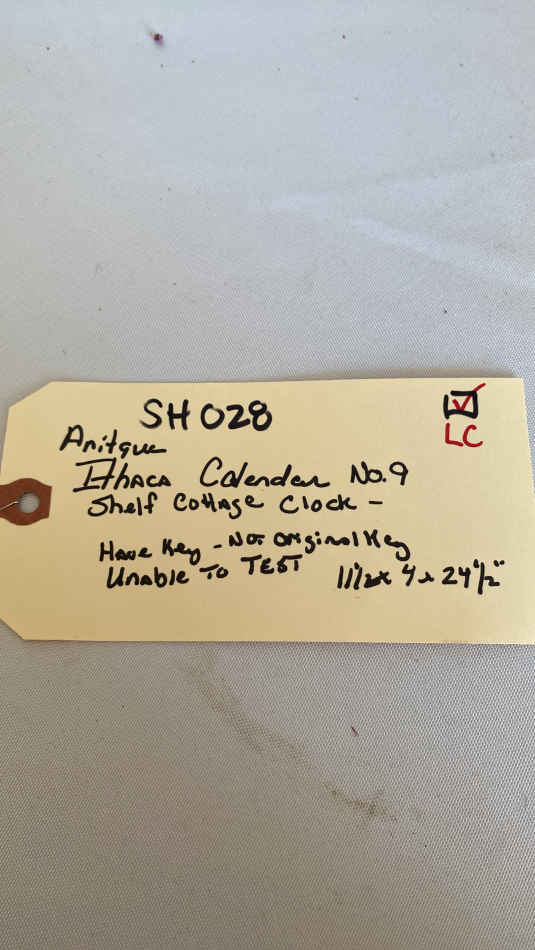 SH 028
LC
Anitque
Ithaca Calender No. 9
Shelf Cottage Clock -
Have Key - Not Original Key
Unable To TEST
11 1/2 x 4 x 24 1/2"